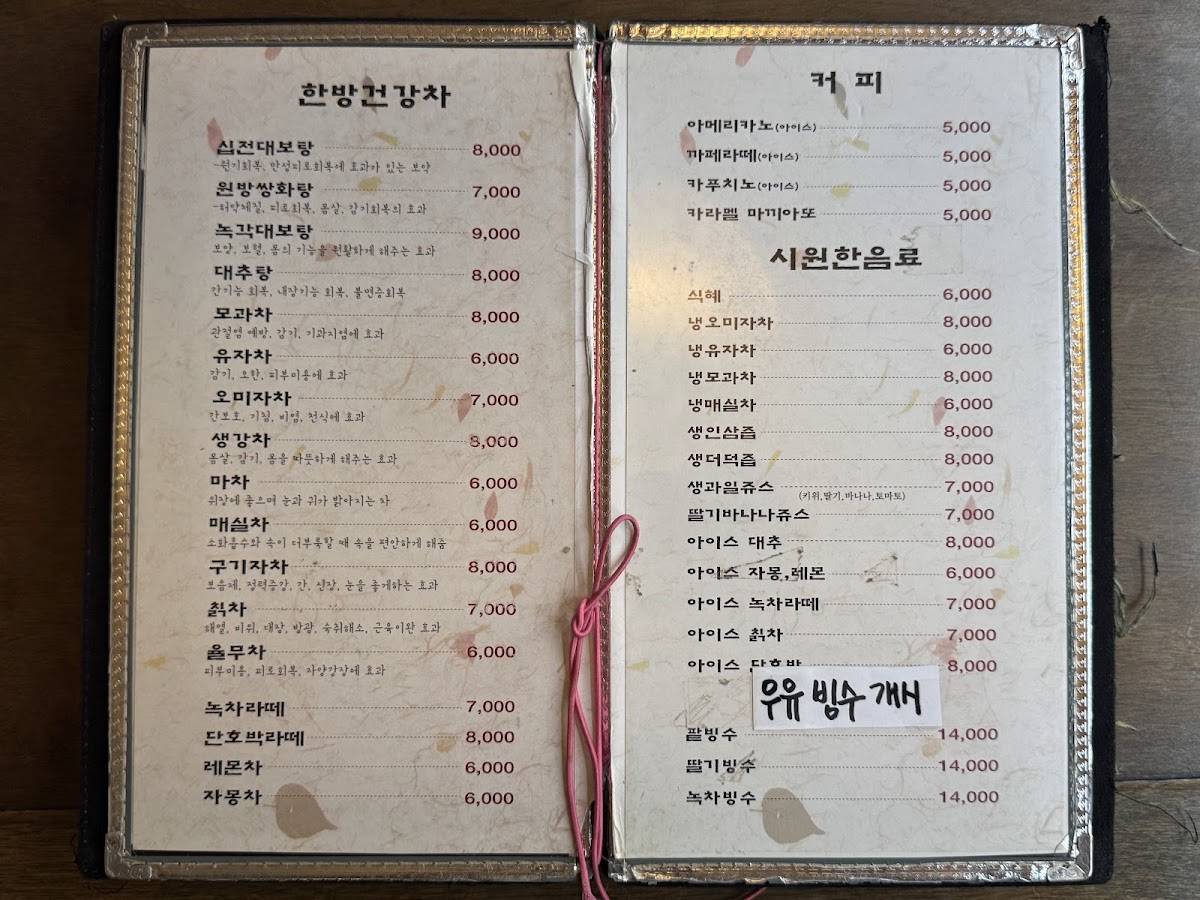 한방건강차
십전대보탕 8,000
-원기회복, 만성피로회복에 효과가 있는 보약
원방쌍화탕 7,000
-허약체질, 피로회복, 몸살, 감기회복의 효과
녹각대보탕 9,000
보양, 보혈, 몸의 기능을 원활하게 해주는 효과
대추탕 8,000
간기능 회복, 내장기능 회복, 불면증회복
모과차 8,000
관절염 예방, 감기, 기관지염에 효과
유자차 6,000
감기, 오한, 피부미용에 효과
오미자차 7,000
간보호, 기침, 비염, 천식에 효과
생강차 8,000
몸살, 감기, 몸을 따뜻하게 해주는 효과
마차 6,000
위장에 좋으며 눈과 귀가 밝아지는 차
매실차 6,000
소화흡수와 속이 더부룩할 때 속을 편안하게 해줌
구기자차 8,000
보음제, 정력증강, 간, 신장, 눈을 좋게하는 효과
칡차 7,000
해열, 비위, 대장, 방광, 숙취해소, 근육이완 효과
율무차 6,000
피부미용, 피로회복, 자양강장에 효과
녹차라떼 7,000
단호박라떼 8,000
레몬차 6,000
자몽차 6,000
커 피
아메리카노(아이스) 5,000
까페라떼(아이스) 5,000
카푸치노(아이스) 5,000
카라멜 마끼아또 5,000
시원한음료
식혜 6,000
냉오미자차 8,000
냉유자차 6,000
냉모과차 8,000
냉매실차 6,000
생인삼즙 8,000
생더덕즙 8,000
생과일쥬스 (키위,딸기,바나나,토마토) 7,000
딸기바나나쥬스 7,000
아이스 대추 8,000
아이스 자몽,레몬 6,000
아이스 녹차라떼 7,000
아이스 칡차 7,000
아이스 단호박 8,000
우유 빙수 개시
팥빙수 14,000
딸기빙수 14,000
녹차빙수 14,000